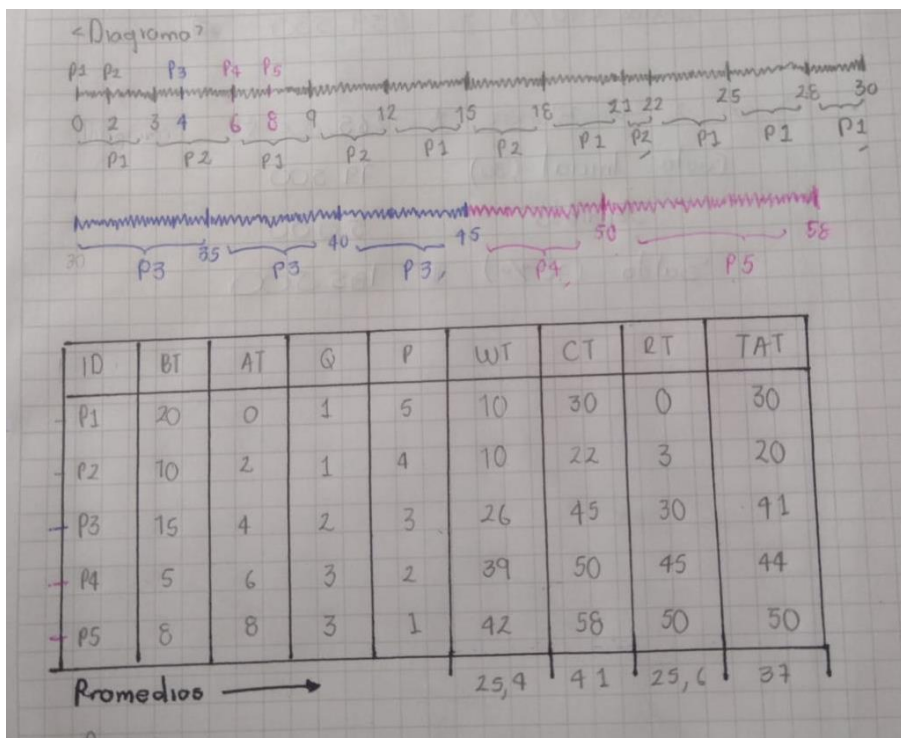 <Diagrama>
P1 P2 P3 P4 P5
0 2 3 4 6 8 9 12 15 18 21 22 25 28 30
P1 P2 P1 P2 P1 P2 P1 P2 P1 P1 P1
30 35 40 45 50 58
P3 P3 P3 P4 P5
ID BT AT Q P WT CT RT TAT
P1 20 0 1 5 10 30 0 30
P2 10 2 1 4 10 22 3 20
P3 15 4 2 3 26 45 30 41
P4 5 6 3 2 39 50 45 44
P5 8 8 3 1 42 58 50 50
Promedios 25,4 41 25,6 37